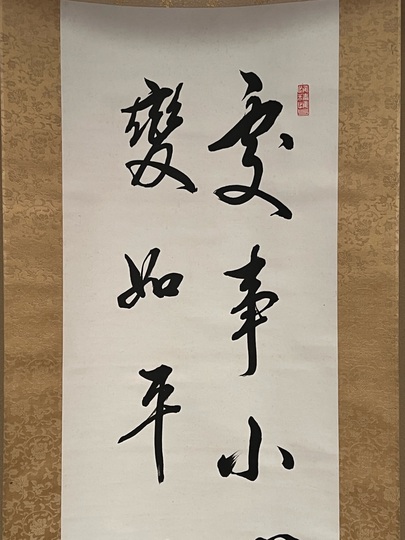 處事小
變如平